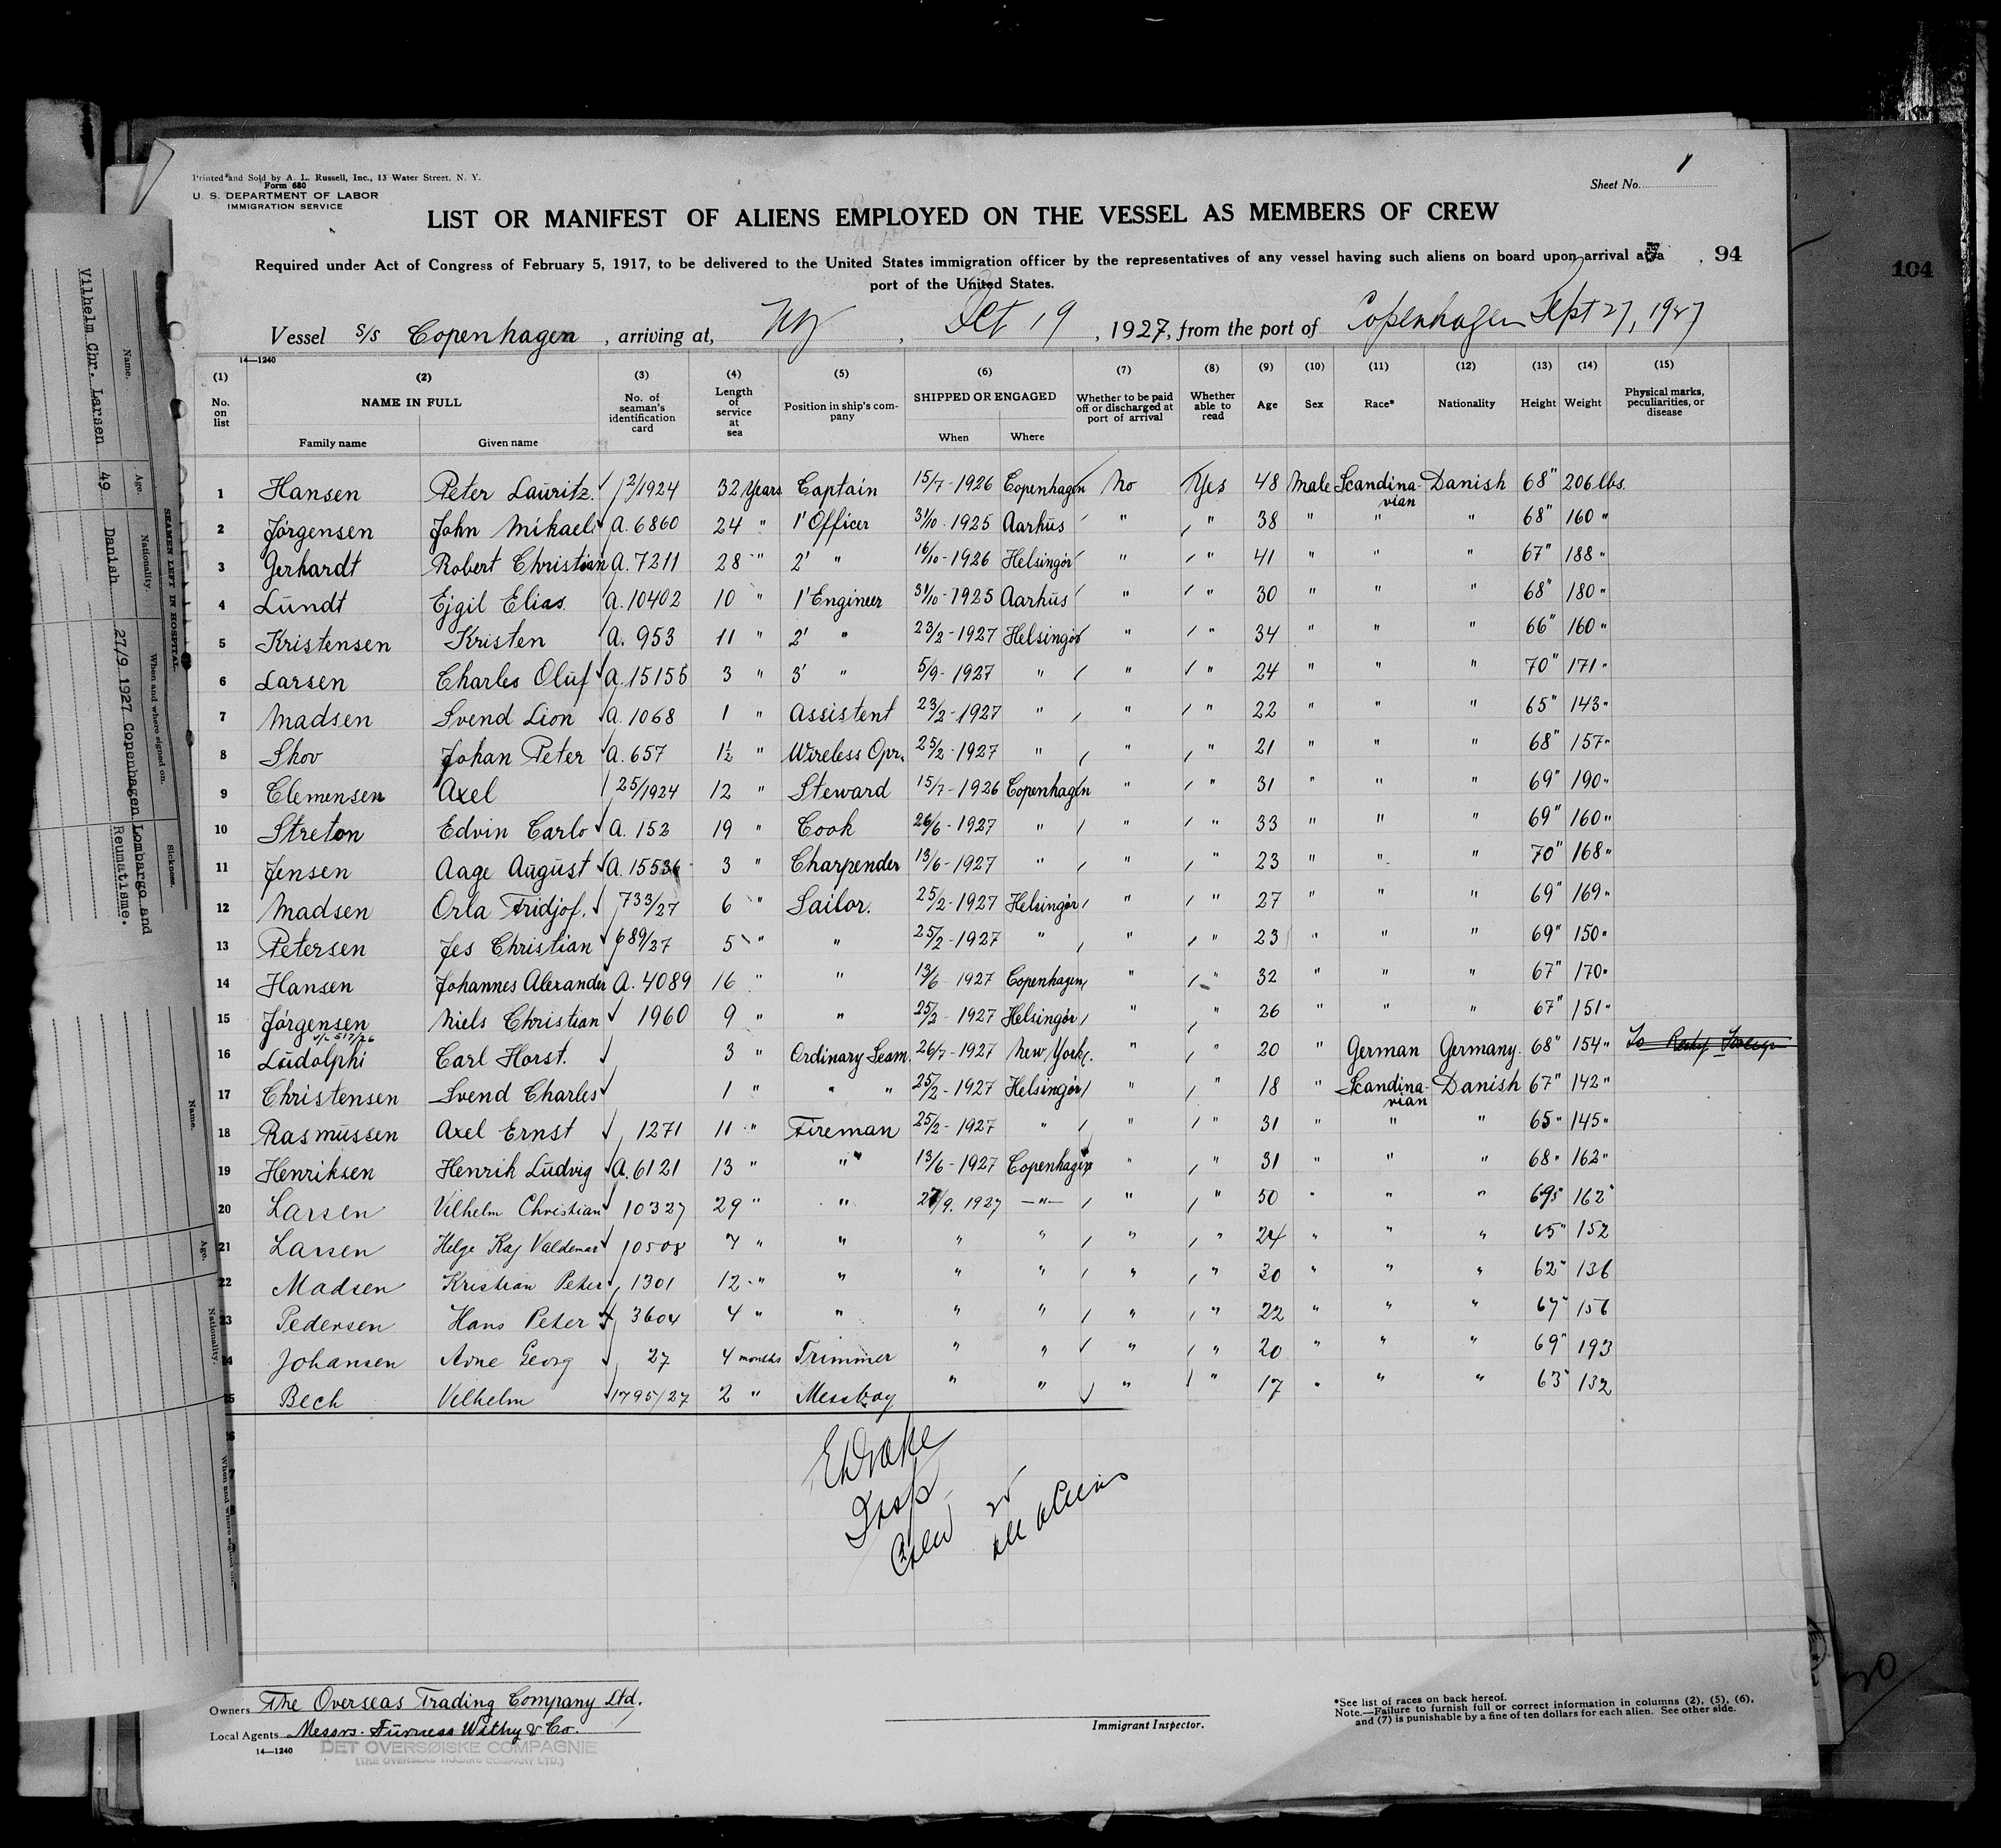 Printed and Sold by A. L. Russell, Inc., 13 Water Street, N. Y.
Form 680
U. S. DEPARTMENT OF LABOR
IMMIGRATION SERVICE
Sheet No. 1
LIST OR MANIFEST OF ALIENS EMPLOYED ON THE VESSEL AS MEMBERS OF CREW
Required under Act of Congress of February 5, 1917, to be delivered to the United States immigration officer by the representatives of any vessel having such aliens on board upon arrival at a
94
104
port of the United States.
Vessel S/S Copenhagen, arriving at, NY, Oct 19, 1927, from the port of Copenhagen Sept 27, 1927
14—1240
(1) (2) (3) (4) (5) (6) (7) (8) (9) (10) (11) (12) (13) (14) (15)
No. on list NAME IN FULL Family name Given name No. of seaman's identification card Length of service at sea Position in ship's company SHIPPED OR ENGAGED When Where Whether to be paid off or discharged at port of arrival Whether able to read Age Sex Race* Nationality Height Weight Physical marks, peculiarities, or disease
1 Hansen Peter Lauritz. 2/1924 32 Years Captain 15/7-1926 Copenhagen No Yes 48 Male Scandinavian Danish 68" 206 lbs.
2 Jørgensen John Mikael A. 6860 24 " 1' Officer 31/10-1925 Aarhus " " 38 " " " 68" 160 "
3 Gerhardt Robert Christian A. 7211 28 " 2' " 16/10-1926 Helsingør " " 41 " " " 67" 188 "
4 Lundt Ejgil Elias A. 10402 10 " 1' Engineer 31/10-1925 Aarhus " " 30 " " " 68" 180 "
5 Kristensen Kristen A. 953 11 " 2' " 23/2-1927 Helsingør " " 34 " " " 66" 160 "
6 Larsen Charles Oluf A. 15156 3 " 3' " 5/9-1927 " " " 24 " " " 70" 171 "
7 Madsen Svend Lion A. 1068 1 " Assistent 23/2-1927 " " " 22 " " " 65" 143 "
8 Skov Johan Peter A. 657 1½ " Wireless Opr. 25/2-1927 " " " 21 " " " 68" 157 "
9 Clemensen Axel 25/1924 12 " Steward 15/7-1926 Copenhagen " " 31 " " " 69" 190 "
10 Streton Edvin Carlo A. 152 19 " Cook 26/6-1927 " " " 33 " " " 69" 160 "
11 Jensen Aage August A. 15536 3 " Charpender 13/6-1927 " " " 23 " " " 70" 168 "
12 Madsen Orla Fridjof. 733/27 6 " Sailor. 25/2-1927 Helsingør " " 27 " " " 69" 169 "
13 Petersen Jes Christian 689/27 5 " " 25/2-1927 " " " 23 " " " 69" 150 "
14 Hansen Johannes Alexander A. 4089 16 " " 13/6 1927 Copenhagen " " 32 " " " 67" 170 "
15 Jørgensen Niels Christian 1960 9 " " 25/2-1927 Helsingør " " 26 " " " 67" 151 "
517/26
16 Ludolphi Carl Horst. 3 " Ordinary Seam. 26/7-1927 New York. " " 20 " German Germany. 68" 154 " To
17 Christensen Svend Charles 1 " " " 25/2-1927 Helsingør " " 18 " Scandinavian Danish 67" 142 "
18 Rasmussen Axel Ernst 1271 11 " Fireman 25/2-1927 " " " 31 " " " 65" 145 "
19 Henriksen Henrik Ludvig A. 6121 13 " " 13/6-1927 Copenhagen " " 31 " " " 68" 162 "
20 Larsen Vilhelm Christian 10327 29 " " 27/9. 1927 —"— " " 50 " " " 69" 162 "
21 Larsen Helge Kaj Valdemar 10508 7 " " " " " " 24 " " " 65" 152
22 Madsen Kristian Peter 1301 12 " " " " " " 30 " " " 62" 136
23 Pedersen Hans Peter 3604 4 " " " " " " 22 " " " 67" 156
24 Johansen Arne Georg 27 4 months Trimmer " " " " 20 " " " 69" 193
25 Bech Vilhelm 1795/27 2 " Messboy " " " " 17 " " " 63" 132
E Drake
Insp
Crew 25
all aliens
Owners The Overseas Trading Company Ltd.
Local Agents Messrs. Furness Withy & Co.
14—1240
DET OVERSØISKE COMPAGNIE
(THE OVERSEAS TRADING COMPANY LTD.)
Immigrant Inspector.
*See list of races on back hereof.
Note.—Failure to furnish full or correct information in columns (2), (5), (6),
and (7) is punishable by a fine of ten dollars for each alien. See other side.
SEAMEN LEFT IN HOSPITAL
Name. Age. Nationality. When and where signed on. Sickness.
Vilhelm Chr. Larsen 49 Danish 27/9 1927 Copenhagen Lombargo and
Reumatisme.
Name. Age. Nationality. When and where signed on.